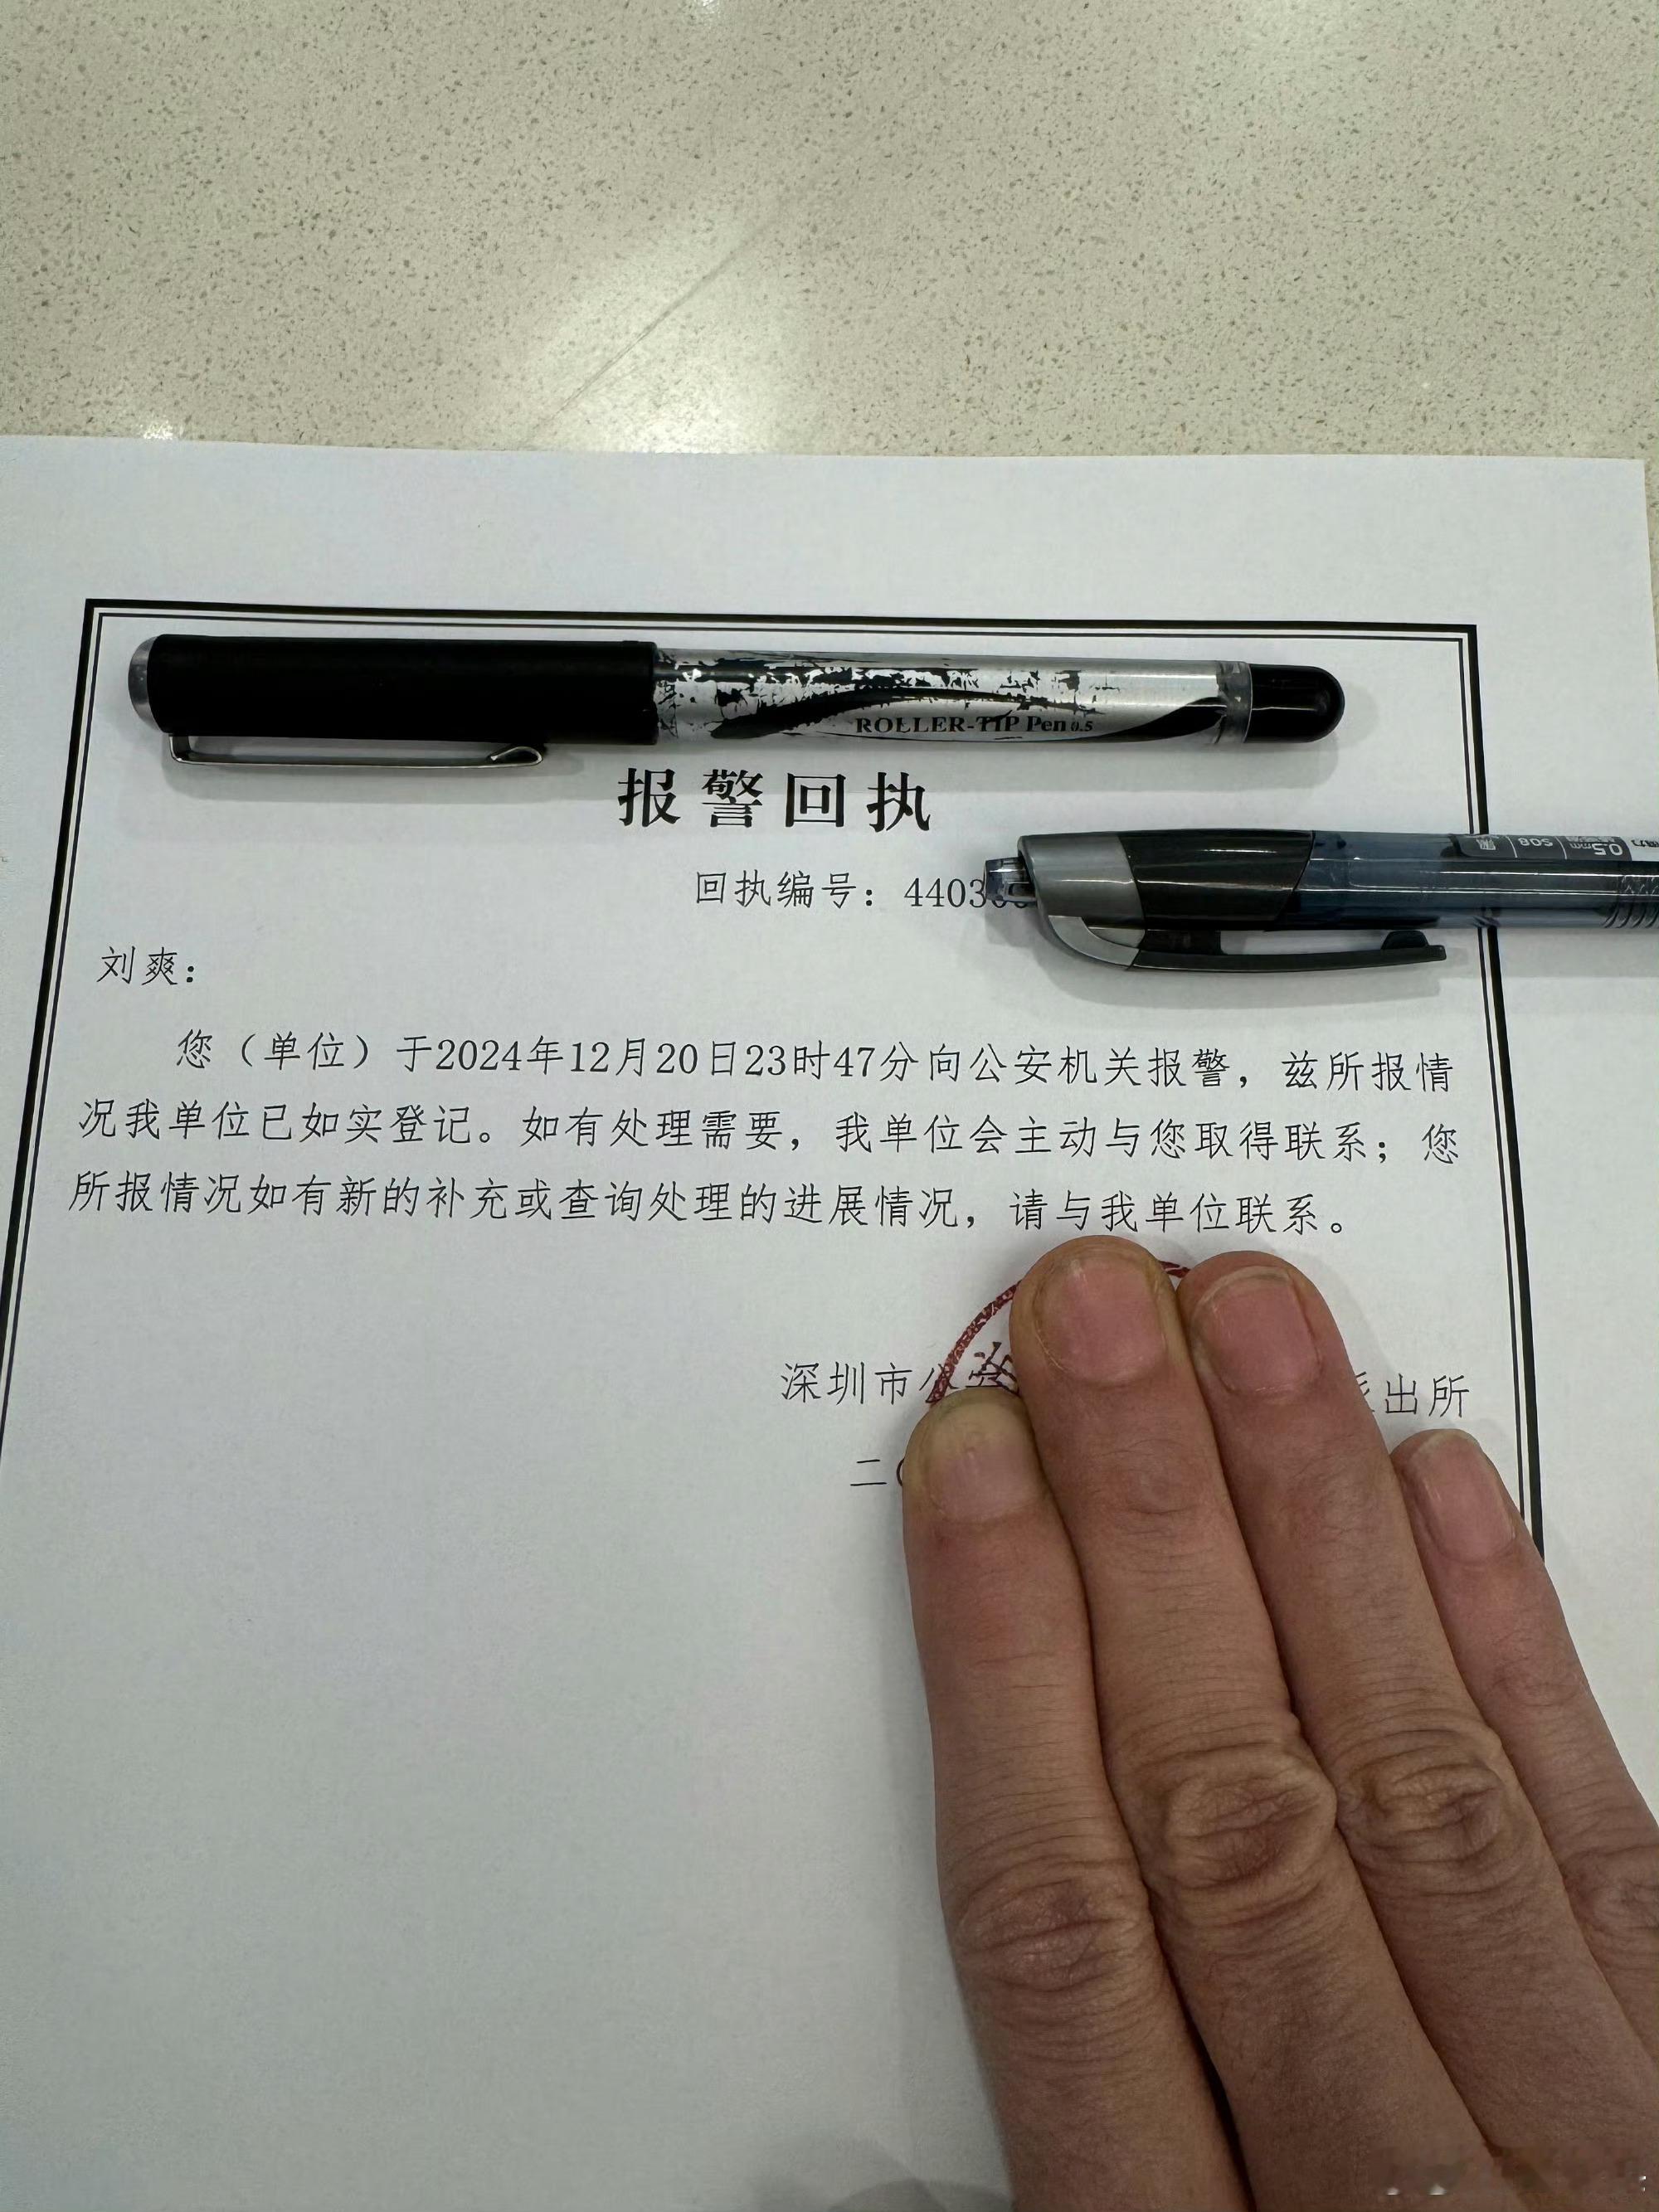 ROLLER-TIP Pen 0.5
报警回执
回执编号：4403
0.5mm
S08
刘爽：
您（单位）于2024年12月20日23时47分向公安机关报警，兹所报情
况我单位已如实登记。如有处理需要，我单位会主动与您取得联系；您
所报情况如有新的补充或查询处理的进展情况，请与我单位联系。
深圳市公安
出所
二